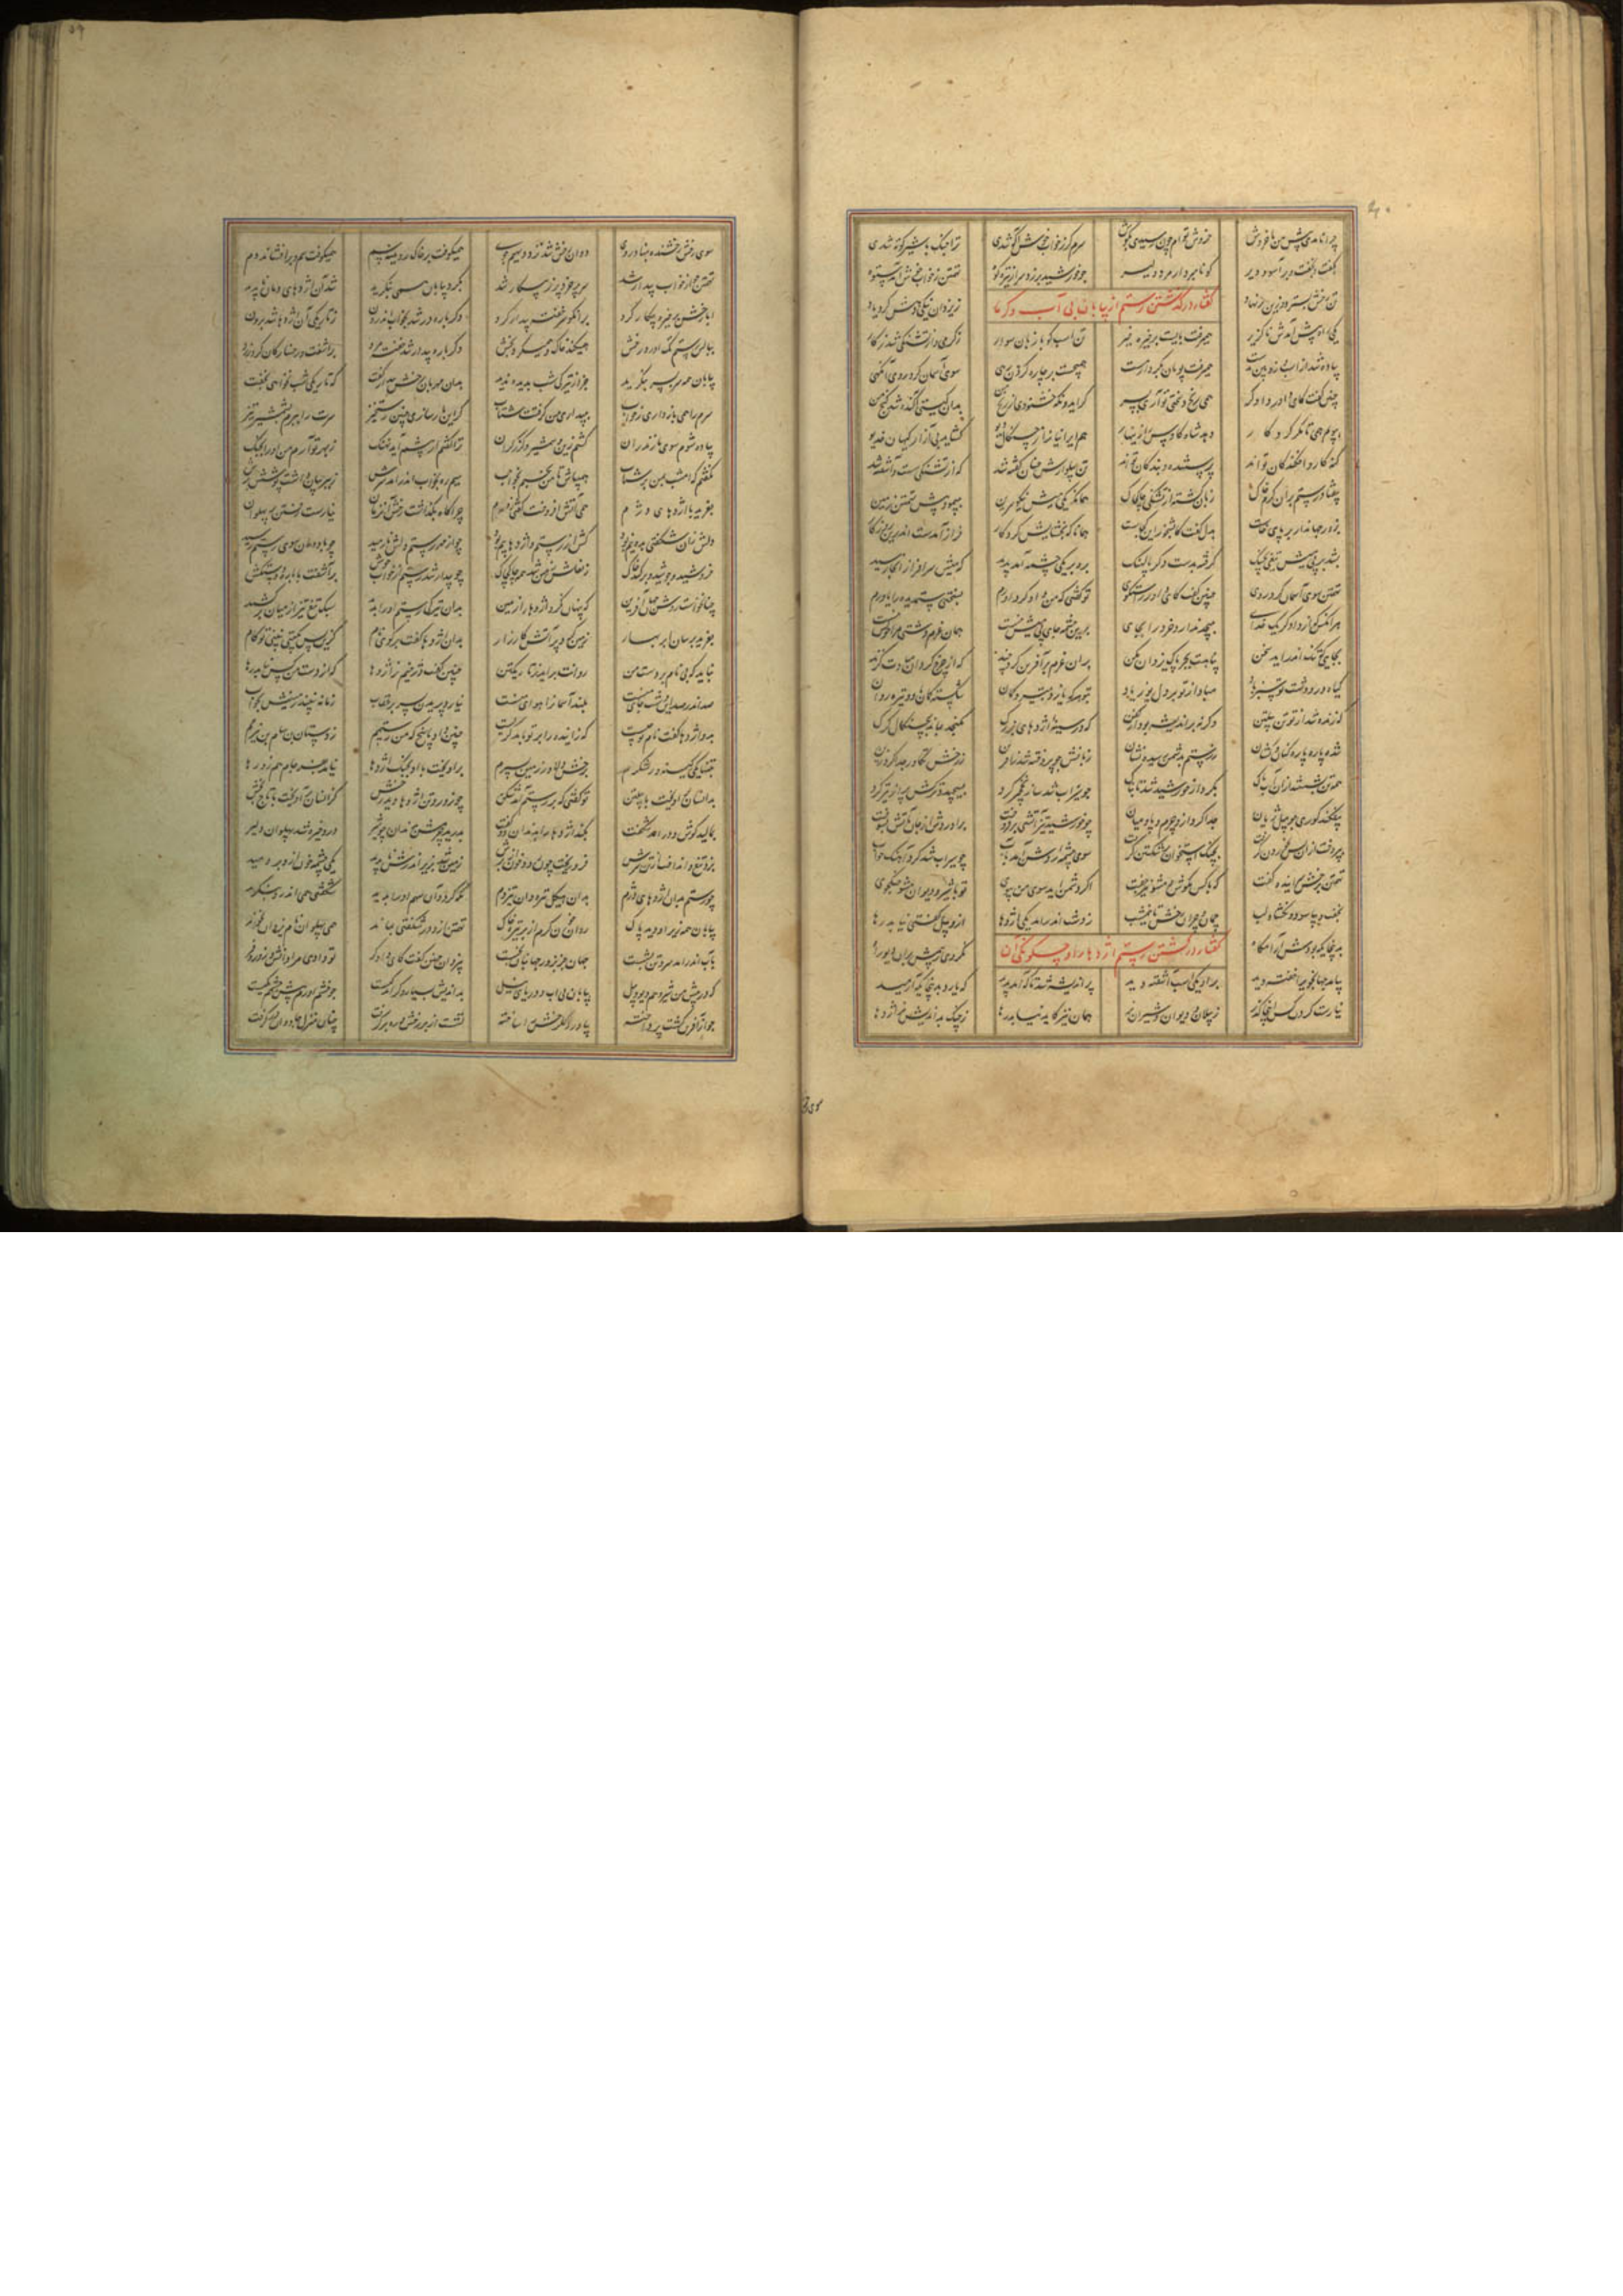 چرا نامدی پیش من با خروش خروش توام چون رسیدی بگوش سرم گر ز خواب خوش آگه شدی ترا جنگ با شیر کوته شدی
بگفت و بخفت و برآسود دیر گو نامبردار مرد دلیر چو خورشید برزد سر از تیره کوه تهمتن ز خواب خوش آمد ستوه
تن رخش بسترد و زین برنهاد ز یزدان نیکی دهش کرد یاد
گفتار در گذشتن رستم از بیابان بی آب و گرما
یکی راه پیش آمدش ناگزیر همیرفت بایست بر خیره خیر تن اسب گویا زبان سوار ز گرمی و از تشنگی شد ز کار
پیاده شد از اسب و ژوبین بدست همیرفت پویان بکردار مست همیجست بر چاره کردن رهی سوی آسمان کرد روی آنگهی
چنین گفت کای داور دادگر همی رنج و سختی تو آری بسر گر ایدونکه خشنودی از رنج من بدان گیتی آگنده شد گنج من
بپویم همی تا مگر کردگار دهد شاه کاوس را زینهار هم ایرانیان را ز چنگال دیو گشاید بی آزار کیهان خدیو
گنه کار و افکندگان تواند پرستنده و بندگان تواند تن پیلوارش چنان تفته شد که از تشنگی سست و آشفته شد
بیفتاد رستم بران گرم خاک زبان گشته از تشنگی چاک چاک همانگه یکی میش نیکو سرین بپیمود پیش تهمتن زمین
بزور جهاندار بر پای خاست بدل گفت کابشخور این کجاست همانا که بخشایش کردگار فراز آمدست اندرین روزگار
بشد بر پی میش و تیغی بچنگ گرفته بدست دگر پالهنگ بره بر یکی چشمه آمد پدید که میش سرافراز آنجا رسید
تهمتن سوی آسمان کرد روی چنین گفت کای داور راستگوی تو گفتی که من دادگر داورم بسختی ستمدیده را یاورم
هر آنکس که از دادگر یک خدای بپیچد ندارد خرد را بجای برین چشمه جای پی میش نیست همان غرم دشتی مرا خویش نیست
بجایی که تنگ اندر آید سخن پناهت بجز پاک یزدان مکن بران غرم بر آفرین کرد چند که از چرخ گردان مبادت گزند
گیاه در و دشت تو سبز باد مباد از تو بر دل یوز یاد
که زنده شد از تو تن پیلتن وگرنه پراندیشه بود از کفن که در سینه اژدهای بزرگ نگنجد بماند بچنگال گرگ
شده پاره پاره کنان و کشان ز رستم بدشمن رسیده نشان زبانش چو پردخته شد ز آفرین ز رخش تکاور جدا کرد زین
همه تن بشستش از آن آب پاک بکردار خورشید شد تابناک چو سیراب شد ساز نخچیر کرد بسیچید و ترکش پر از تیر کرد
بیفکند گوری چو پیل ژیان جدا کرد ازو چرم و پا و میان چو خورشید تیز آتشی برفروخت
بپردخت از آن پس بخوردن گرفت بچنگ استخوانش شکستن گرفت سوی چشمه روشن آمد بآب چو سیراب شد کرد آهنگ خواب
تهمتن برخش ستیزنده گفت که با کس مکوش و مشو نیز جفت اگر دشمن آید سوی من بپوی تو با شیر و دیوان مشو جنگجوی
بخفت و بیاسود و نگشاد لب چمان و چران رخش تا نیمشب ز دشت اندر آمد یکی اژدها ازو پیل گفتی نیابد رها
بدانجایگه بودش آرامگاه
گفتار در کشتن رستم اژدها را و چگونگی آن
بیامد جهانجوی را خفته دید بر او یکی اسب آشفته دید پر اندیشه شد تا که آمد پدید که یارد بدینجایگه آرمید
نیارست کردن کس آنجا گذر ز پیلان و دیوان و شیران نر همان نیز کاید نیابد رها ز چنگ بداندیش نر اژدها
سوی رخش رخشنده بنهاد روی دوان رخش شد نزد دیهیم جوی همیکوفت بر خاک رویینه سم همیکوفت سم و برافشاند دم
تهمتن چو از خواب بیدار شد سر پرخرد پر ز پیکار شد بگرد بیابان همی بنگرید شد آن اژدهای دمان ناپدید
ابا رخش بر خیره پیکار کرد بدان کو سر خفته بیدار کرد دگر باره در شد بخواب اندرون ز تاریکی آن اژدها شد برون
ببالین رستم تگ آورد رخش همیکند خاک و همیکرد پخش دگر باره بیدار شد خفته مرد برآشفت و رخسارگان کرد زرد
بیابان همه سربسر بنگرید جز از تیرگی شب بدیده ندید بدان مهربان رخش بیدار گفت که تاریکی شب نخواهی نهفت
سرم را همی باز داری ز خواب ببیداری من گرفتت شتاب گر این بار سازی چنین رستخیز سرت را ببرم بشمشیر تیز
پیاده شوم سوی مازندران کشم زین و شمشیر و گرز گران
نگفتم که امشب بمن برشتاب همیباش تا من بجنبم ز خواب سیم ره بخواب اندر آمد سرش ز ببر بیان داشت پوشش برش
بغرید باز اژدهای دژم همی آتش افروخت گفتی بدم چراگاه بگذاشت رخش آنزمان نیارست رفتن بر پهلوان
دلش زان شگفتی بدو نیم بود کش از رستم و اژدها بیم بود چو از مهر رستم دلش نارمید چو باد دمان سوی رستم رسید
خروشید و جوشید و برکند خاک ز نعلش زمین شد همه چاک چاک چو بیدار شد رستم از خواب خوش برآشفت با باره دستکش
چنان خواست روشن جهان آفرین که پنهان نکرد اژدها را زمین بدان تیرگی رستم او را بدید سبک تیغ تیز از میان برکشید
بغرید برسان ابر بهار زمین کرد پر آتش کارزار بدان اژدها گفت برگوی نام کزین پس بگیتی نبینی تو کام
نباید که بی نام بر دست من روانت برآید ز تاریک تن چنین گفت دژخیم نر اژدها که از دست من کس نیابد رها
صد اندر صد این دشت جای منست بلند آسمانش هوای منست نیارد پریدن بسر بر عقاب زمانه نبیند زمینش بخواب
بدو اژدها گفت نام تو چیست که زاینده را بر تو باید گریست چنین داد پاسخ که من رستمم ز دستان بن سام بن نیرمم
بتنها یکی کینه ور لشکرم برخش دلاور زمین بسپرم برآویخت با او بجنگ اژدها نیامد بفرجام هم زو رها
بدانسان که آویخت با پیلتن تو گفتی که بر رستم آمد شکن چو زور تن اژدها دید رخش کزانسان برآویخت با تاج بخش
بمالید گوش و درآمد شگفت بکند اژدها را بدندان دو کفت بدرید چرمش بدندان چو شیر درو خیره شد پهلوان دلیر
بزد تیغ و انداخت از تن سرش فرو ریخت چون رود خون از برش زمین شد بزیر اندرش ناپدید یکی چشمه خون ازو بردمید
چو رستم بدان اژدهای دژم نگه کرد و آن سهم او را بدید شگفتی همی اندرو بنگرید
بیابان همه زیر او دید پاک روان خون گرم از بر تیره خاک تهمتن ازو در شگفتی بماند همی پهلوان نام یزدان بخواند
بآب اندر آمد سر و تن بشست جهان جز بزور جهانبان نجست بیزدان چنین گفت کای دادگر تو دادی مرا دانش و زور و فر
که در پیش من شیر و چه دیو و پیل بیابان بی آب و دریای نیل بداندیش بسیار و گر اندکیست چو خشم آورم پیش چشمم یکیست
چو از آفرین گشت پرداخته بیاورد گلرخش را ساخته نشست از بر رخش و ره برگرفت
سوی رخش